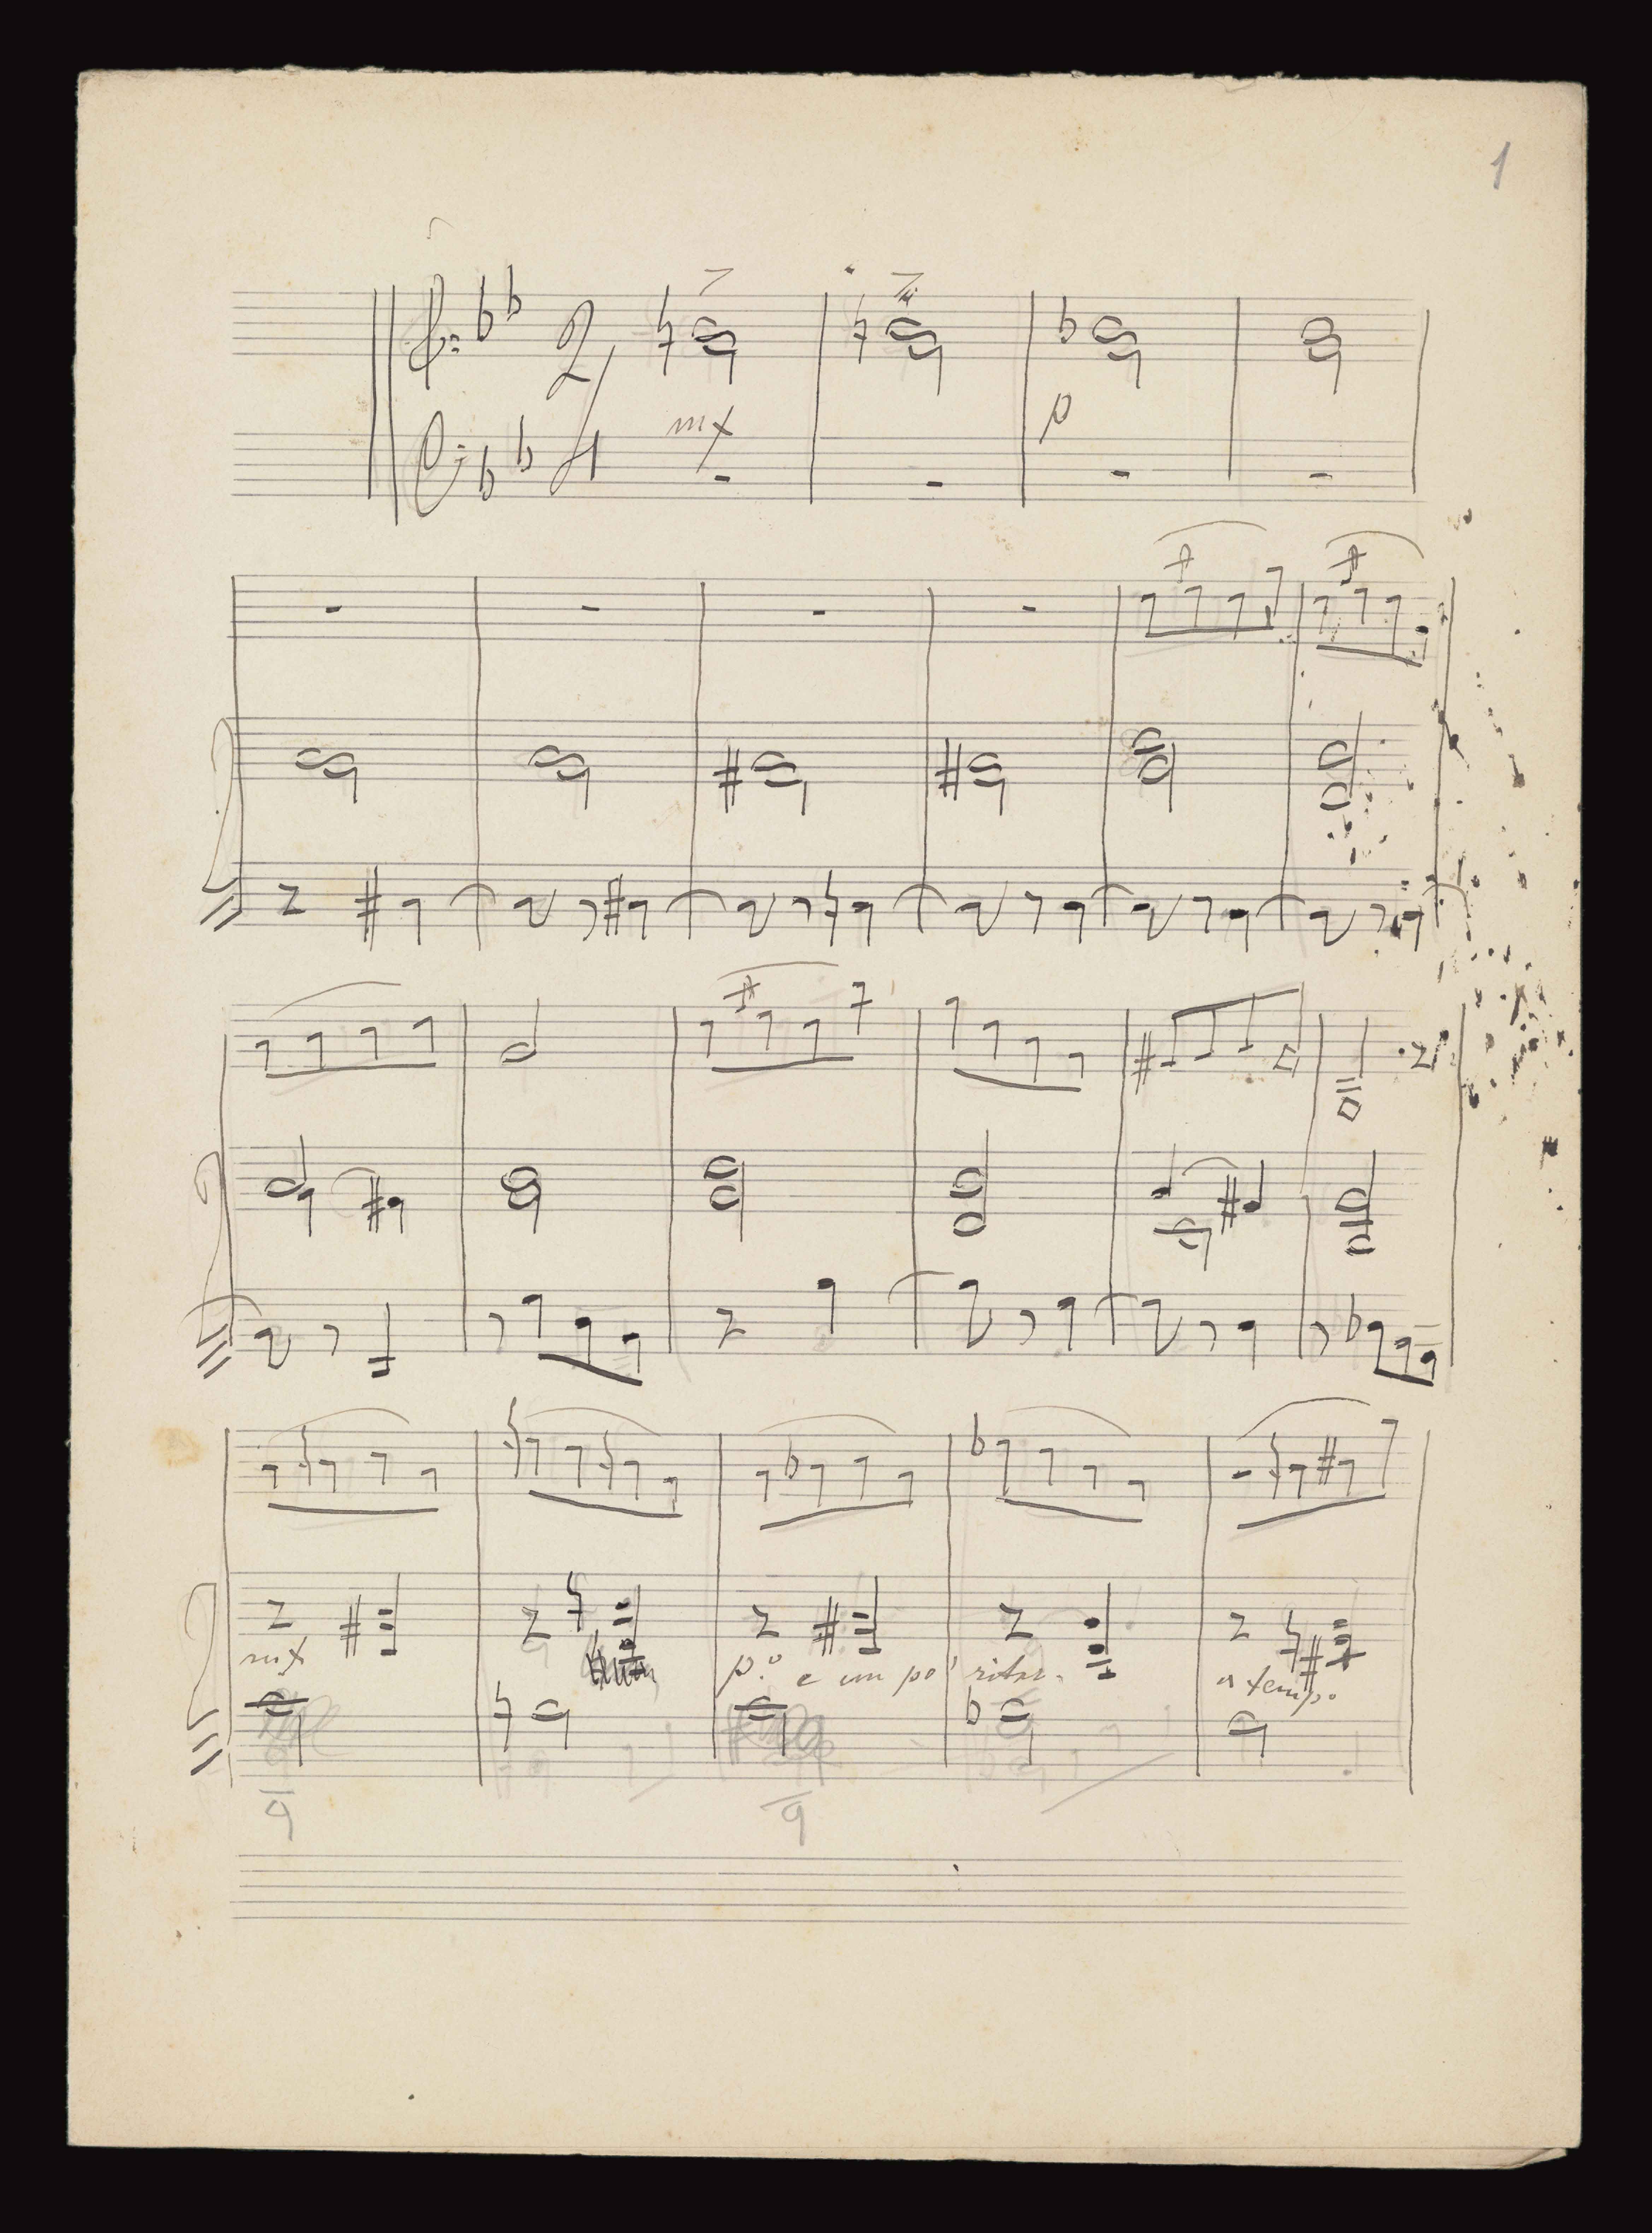 1
2/4
mf
p
mf
p.º e un po' ritar.
a tempo